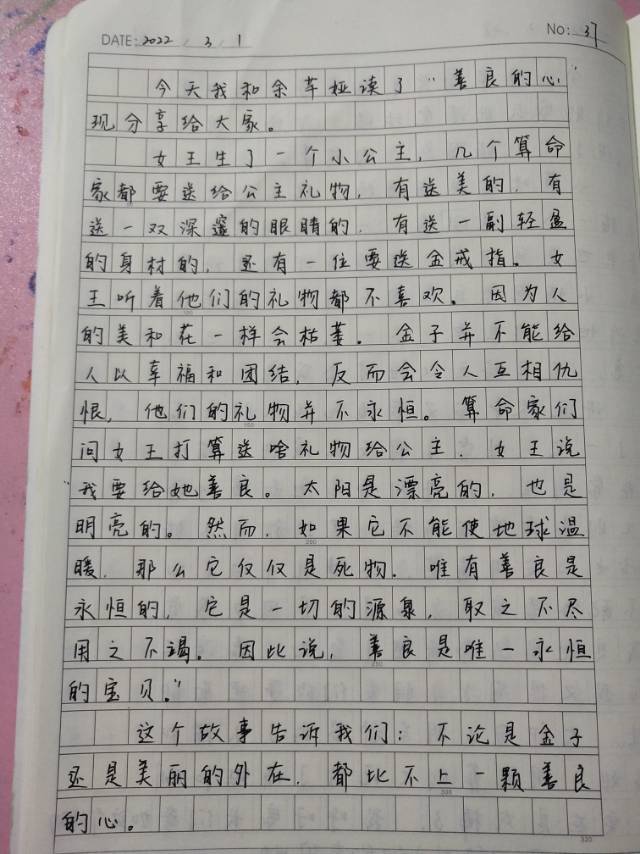 DATE: 2022 / 3 / 1 NO: 37
今天我和余苹桠读了“善良的心”
现分享给大家。
女王生了一个小公主，几个算命
家都要送给公主礼物，有送美的，有
送一双深邃的眼睛的，有送一副轻盈
的身材的，还有一位要送金戒指。女
王听着他们的礼物都不喜欢。因为人
的美和花一样会枯萎。金子并不能给
人以幸福和团结，反而会令人互相仇
恨，他们的礼物并不永恒。算命家们
问女王打算送啥礼物给公主，女王说
我要给她善良。太阳是漂亮的，也是
明亮的。然而，如果它不能使地球温
暖，那么它仅仅是死物。唯有善良是
永恒的，它是一切的源泉，取之不尽
用之不竭。因此说，善良是唯一永恒
的宝贝。”
这个故事告诉我们：不论是金子
还是美丽的外在，都比不上一颗善良
的心。